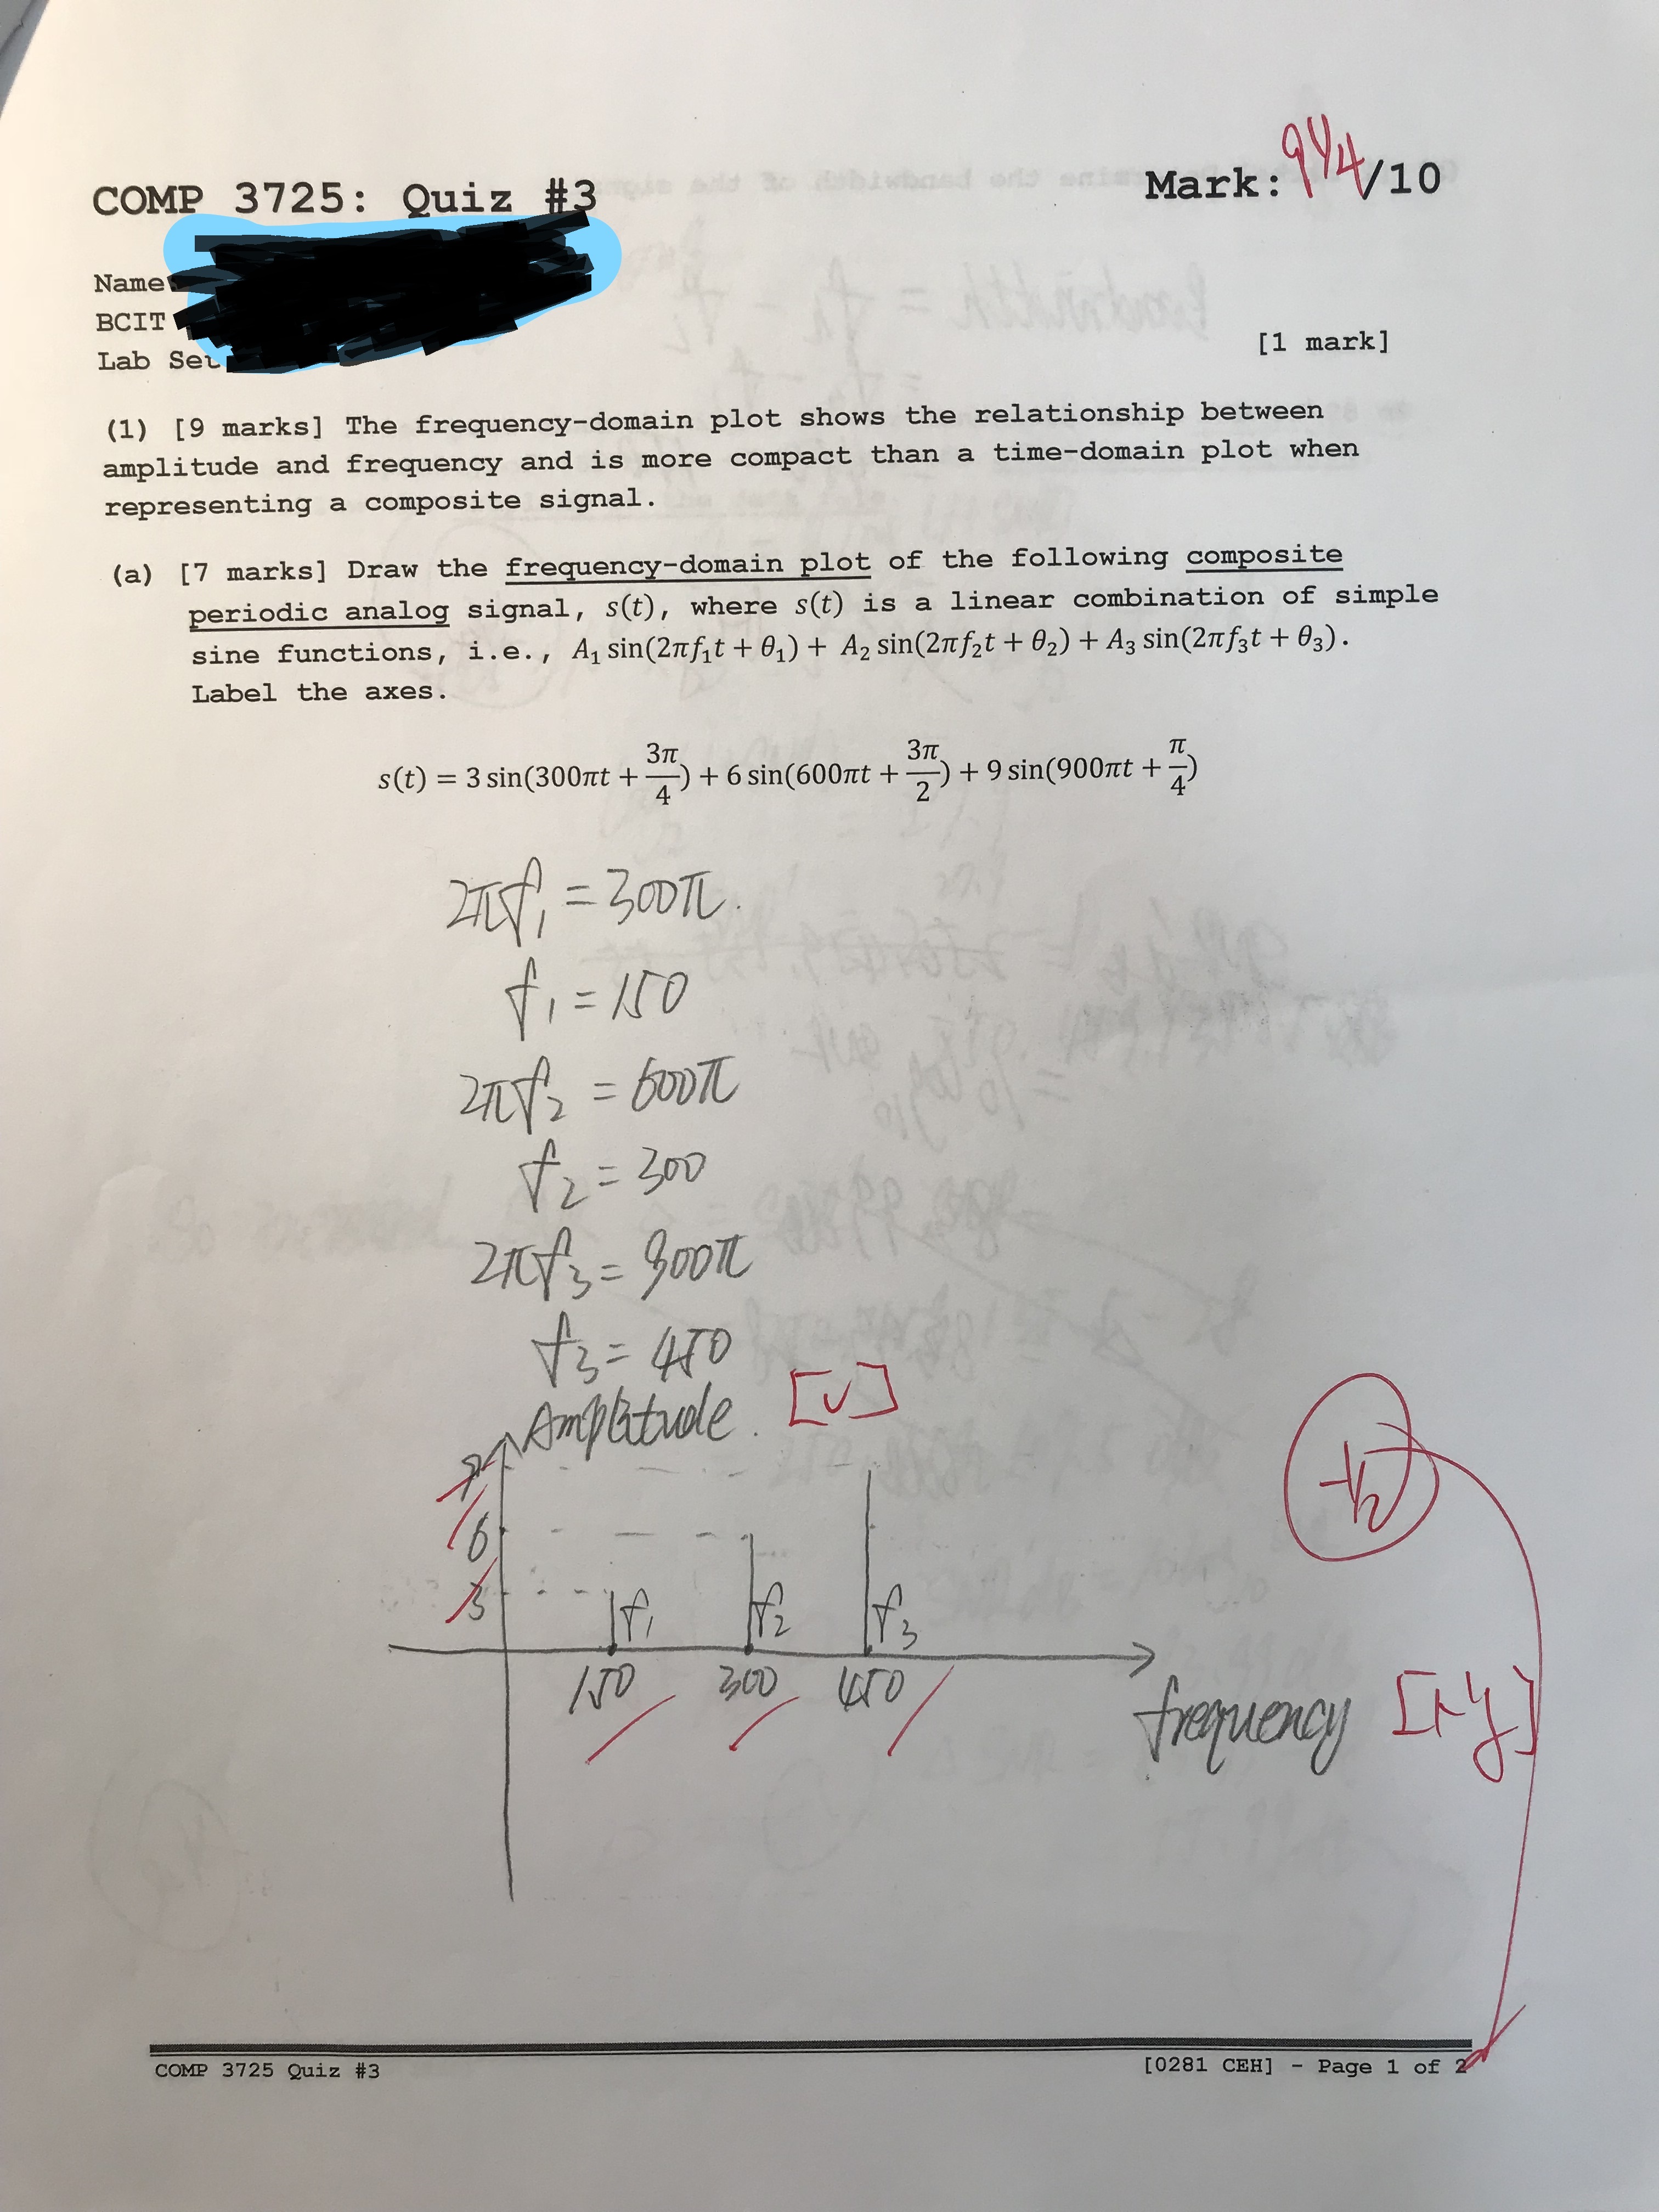 COMP 3725: Quiz #3
Mark: 9 1/4/10
Name
BCIT
Lab Set
[1 mark]
(1) [9 marks] The frequency-domain plot shows the relationship between
amplitude and frequency and is more compact than a time-domain plot when
representing a composite signal.
(a) [7 marks] Draw the frequency-domain plot of the following composite
periodic analog signal, s(t), where s(t) is a linear combination of simple
sine functions, i.e., A₁ sin(2πf₁t + θ₁) + A₂ sin(2πf₂t + θ₂) + A₃ sin(2πf₃t + θ₃).
Label the axes.
s(t) = 3 sin(300πt + 3π/4) + 6 sin(600πt + 3π/2) + 9 sin(900πt + π/4)
2πf₁ = 300π.
f₁ = 150
2πf₂ = 600π
f₂ = 300
2πf₃ = 900π
f₃ = 450
Amplitude. [V]
9
6
3
f₁ f₂ f₃
150 300 450
frequency [Hz]
-1/2
COMP 3725 Quiz #3
[0281 CEH] - Page 1 of 2